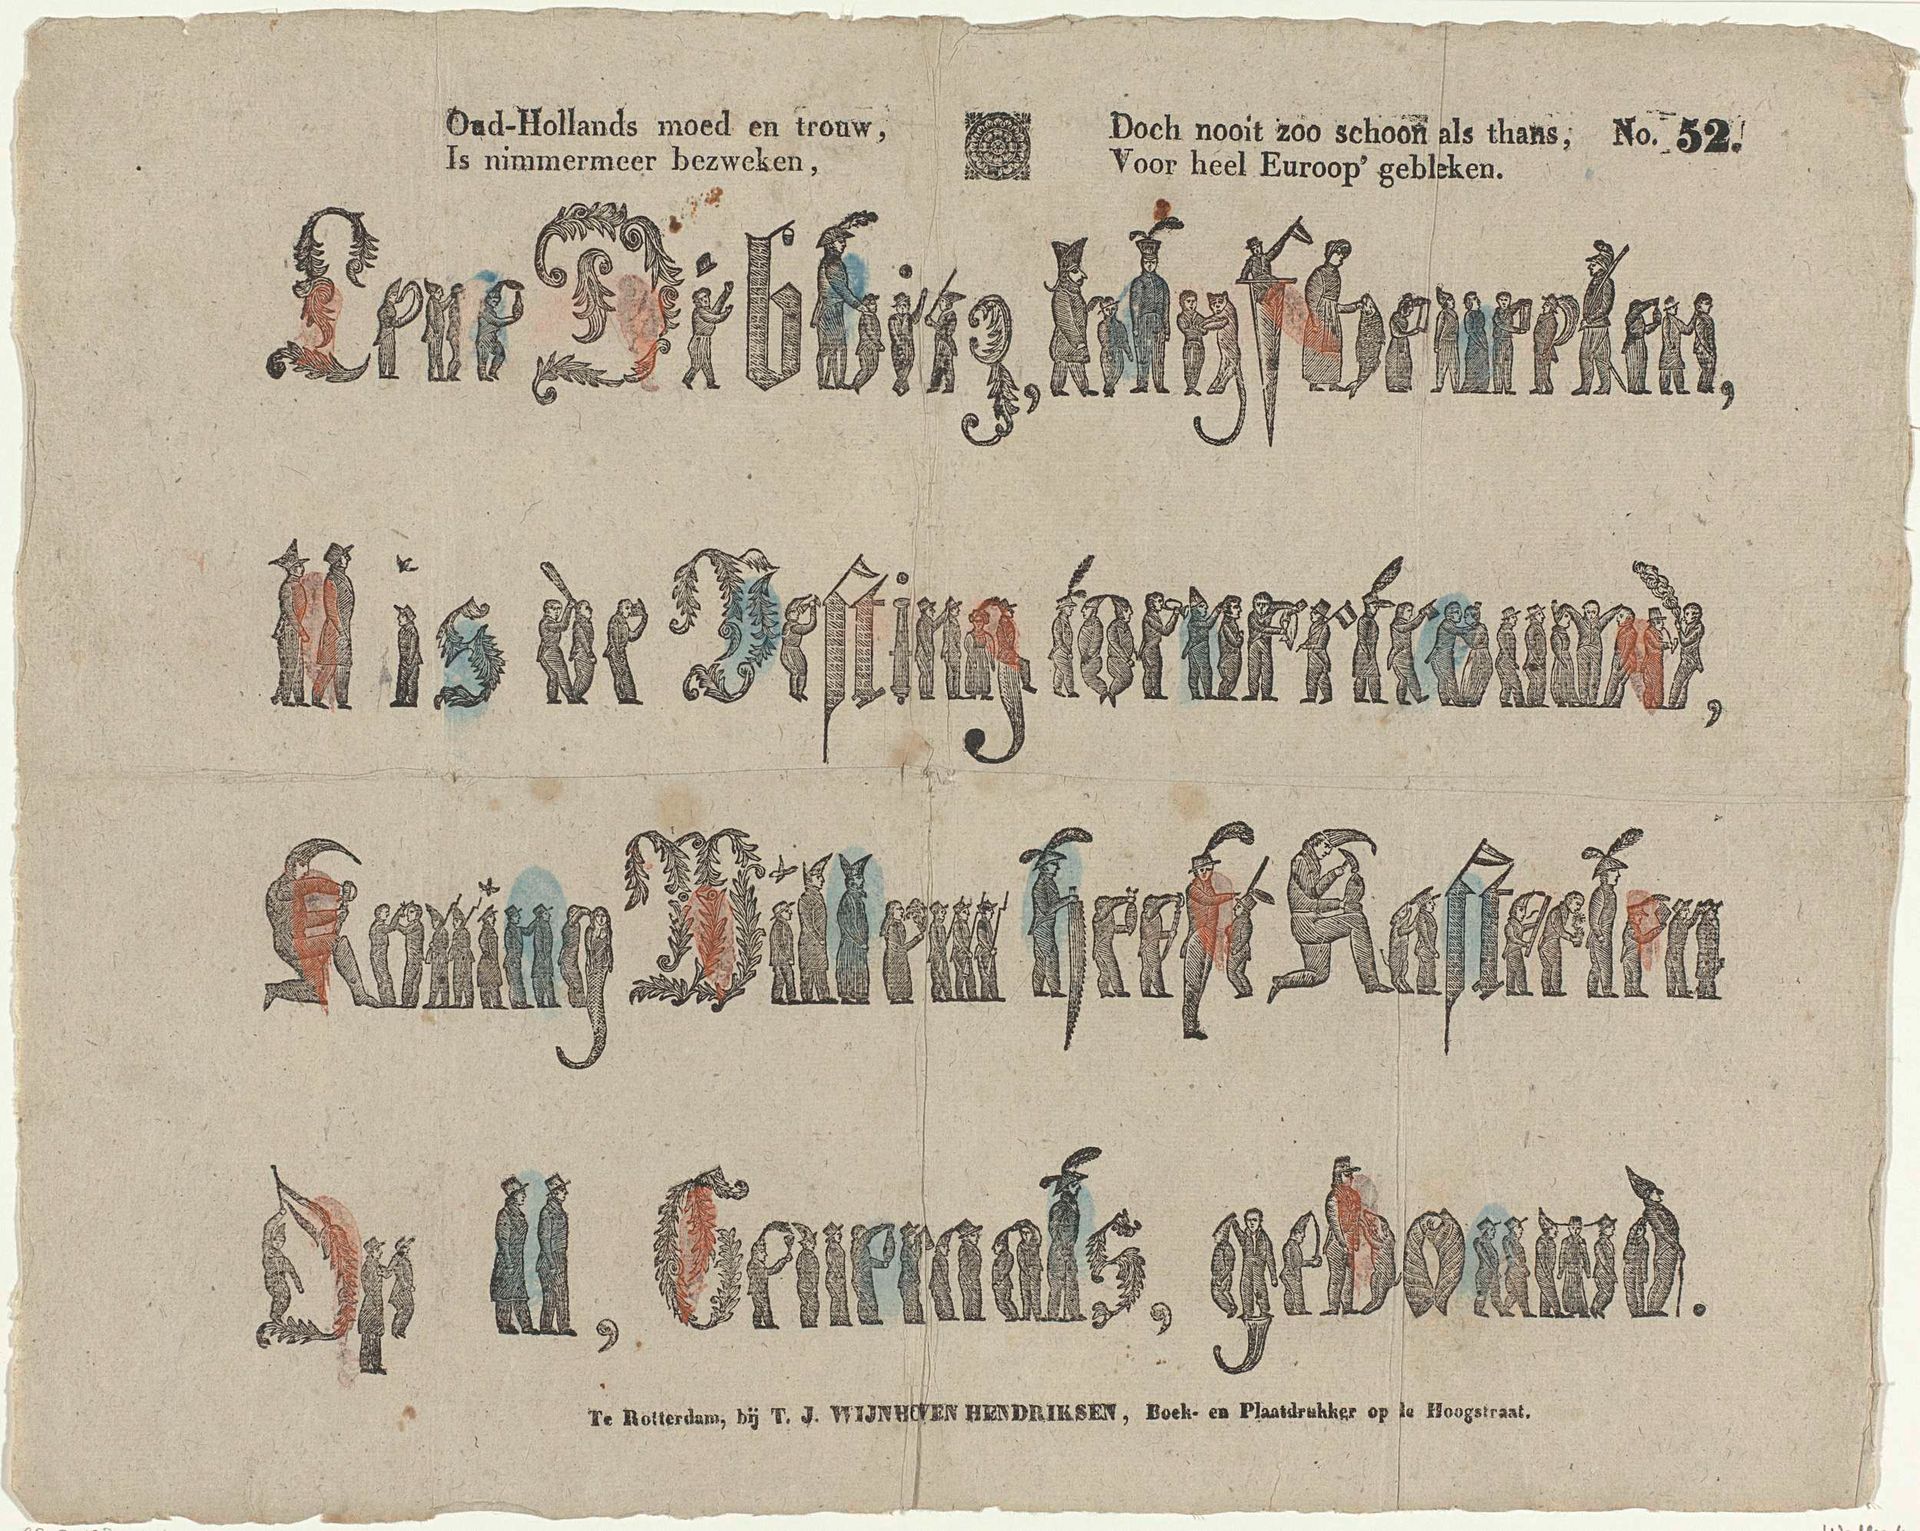 Oud-Hollands moed en trouw,
Is nimmermeer bezweken,
Doch nooit zoo schoon als thans,
Voor heel Euroop' gebleken.
No. 52.
Leve Dibbitz,
U is de Vesting toevertrouwd,
Koning Willem heeft Kasteelen
Op U, Generaals, gebouwd.
Te Rotterdam, bij T. J. WIJNHOVEN HENDRIKSEN, Boek- en Plaatdrukker op de Hoogstraat.